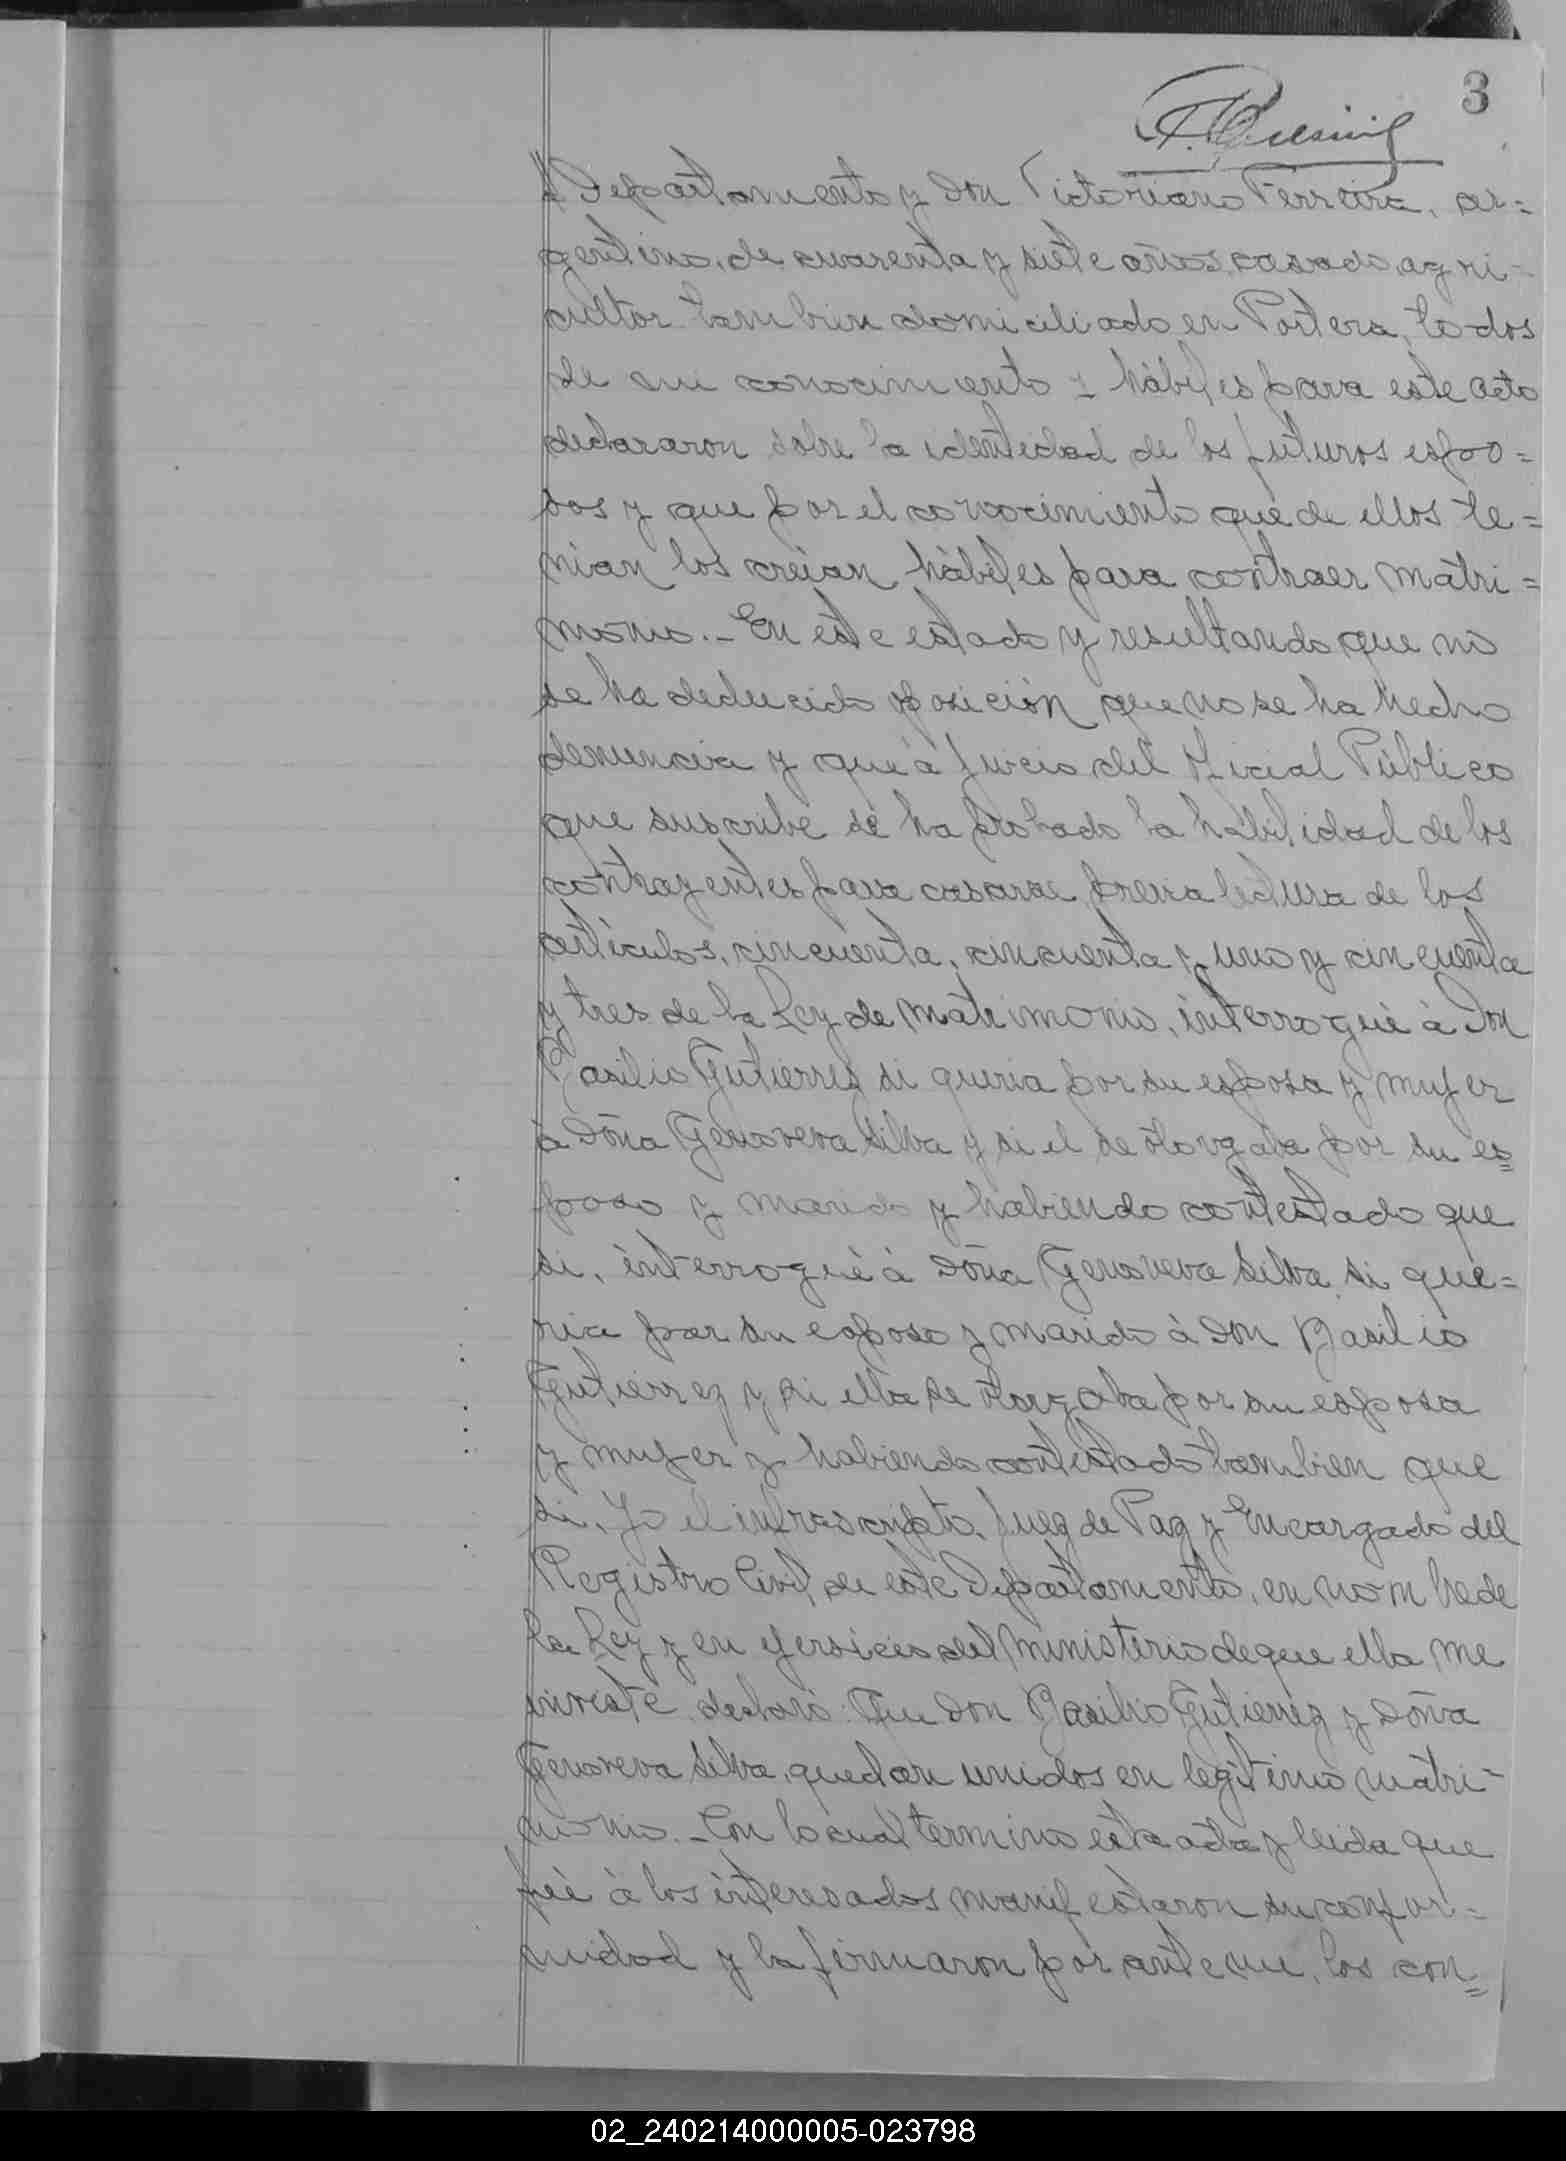 3
Departamento y Don Victoriano Ferreira, ar=
gentino, de cuarenta y siete años, casado, agri=
cultor tambien domiciliado en Portera, todos
de mi conocimiento y hábiles para este acto
declararon sobre la identidad de los futuros espo=
sos y que por el conocimiento que de ellos te=
nian los creian hábiles para contraer matri=
monio.- En este estado y resultando que no
se ha deducido oposición que no se ha hecho
denuncia y que á juicio del Oficial Público
que suscribe se ha probado la habilidad de los
contrayentes para casarse, previa lectura de los
artículos, cincuenta, cincuenta y uno y cincuenta
y tres de la Ley de matrimonio, interrogué á Don
Basilio Gutierrez si queria por su esposa y mujer
á Doña Genoveva Silva y si el se otorgaba por su es=
poso y marido y habiendo contestado que
si, interrogué á Doña Genoveva Silva, si que=
ria por su esposo y marido á Don Basilio
Gutierrez y si ella se otorgaba por su esposa
y mujer y habiendo contestado tambien que
si, Yo el infrascripto, Juez de Paz y Encargado del
Registro Civil de este Departamento, en nombre de
la Ley y en ejersicio del ministerio de que ella me
inviste, declaro: Que Don Basilio Gutierrez y Doña
Genoveva Silva, quedan unidos en legítimo matri=
monio.- Con lo cual termino esta acta y leida que
fué á los interesados manifestaron su confor=
midad y la firmaron por ante mi, los con=
02_240214000005-023798